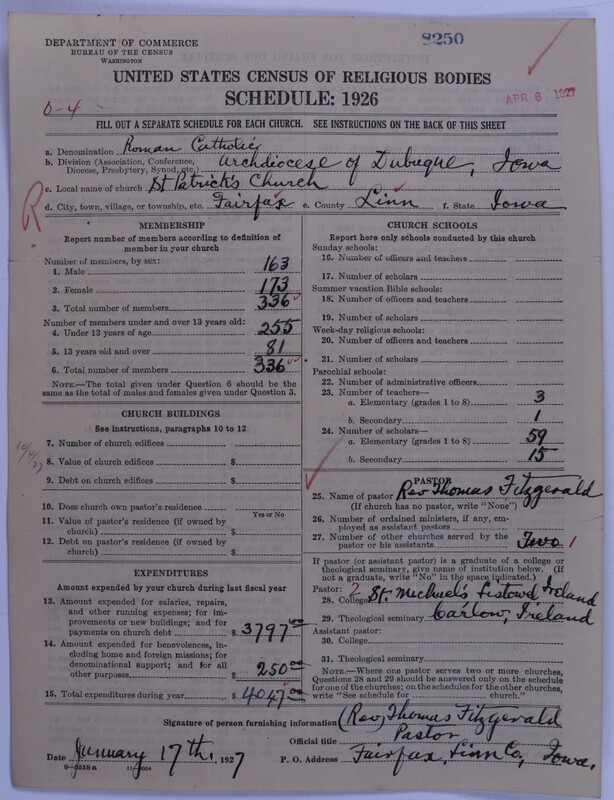 DEPARTMENT OF COMMERCE
BUREAU OF THE CENSUS
WASHINGTON
8250
UNITED STATES CENSUS OF RELIGIOUS BODIES
SCHEDULE: 1926
APR 6 1927
0-4
FILL OUT A SEPARATE SCHEDULE FOR EACH CHURCH. SEE INSTRUCTIONS ON THE BACK OF THIS SHEET
a. Denomination Roman Catholic
b. Division (Association, Conference, Diocese, Presbytery, Synod, etc.) Archdiocese of Dubuque, Iowa
c. Local name of church St Patrick's Church
d. City, town, village, or township, etc. Fairfax e. County Linn f. State Iowa
R
MEMBERSHIP
Report number of members according to definition of
member in your church
Number of members, by sex:
1. Male 163
2. Female 173
3. Total number of members 336
Number of members under and over 13 years old:
4. Under 13 years of age 255
5. 13 years old and over 81
6. Total number of members 336
NOTE.—The total given under Question 6 should be
same as the total of males and females given under Question 3.
CHURCH BUILDINGS
See instructions, paragraphs 10 to 12
7. Number of church edifices
8. Value of church edifices $
9. Debt on church edifices $
10. Does church own pastor's residence
Yes or No
11. Value of pastor's residence (if owned by
church) $
12. Debt on pastor's residence (if owned by
church) $
EXPENDITURES
Amount expended by your church during last fiscal year
13. Amount expended for salaries, repairs,
and other running expenses; for im-
provements or new buildings; and for
payments on church debt $ 3797.00
14. Amount expended for benevolences, in-
cluding home and foreign missions; for
denominational support; and for all
other purposes 250.00
15. Total expenditures during year $ 4047.00
CHURCH SCHOOLS
Report here only schools conducted by this church
Sunday schools:
16. Number of officers and teachers
17. Number of scholars
Summer vacation Bible schools:
18. Number of officers and teachers
19. Number of scholars
Week-day religious schools:
20. Number of officers and teachers
21. Number of scholars
Parochial schools:
22. Number of administrative officers
23. Number of teachers—
a. Elementary (grades 1 to 8) 3
b. Secondary 1
24. Number of scholars—
a. Elementary (grades 1 to 8) 59
b. Secondary 15
PASTOR
25. Name of pastor Rev Thomas Fitzgerald
(If church has no pastor, write "None")
26. Number of ordained ministers, if any, em-
ployed as assistant pastors
27. Number of other churches served by the
pastor or his assistants Two 1
If pastor (or assistant pastor) is a graduate of a college or
theological seminary, give name of institution below. (If
not a graduate, write "No" in the space indicated.)
Pastor: 2
28. College St. Michael's Listowel Ireland
29. Theological seminary Carlow, Ireland
Assistant pastor:
30. College
31. Theological seminary
NOTE.—Where one pastor serves two or more churches,
Questions 28 and 29 should be answered only on the schedule
for one of the churches; on the schedules for the other churches,
write "See schedule for church."
Signature of person furnishing information (Rev) Thomas Fitzgerald
Official title Pastor
Date January 17th, 1927 P. O. Address Fairfax, Linn Co., Iowa.